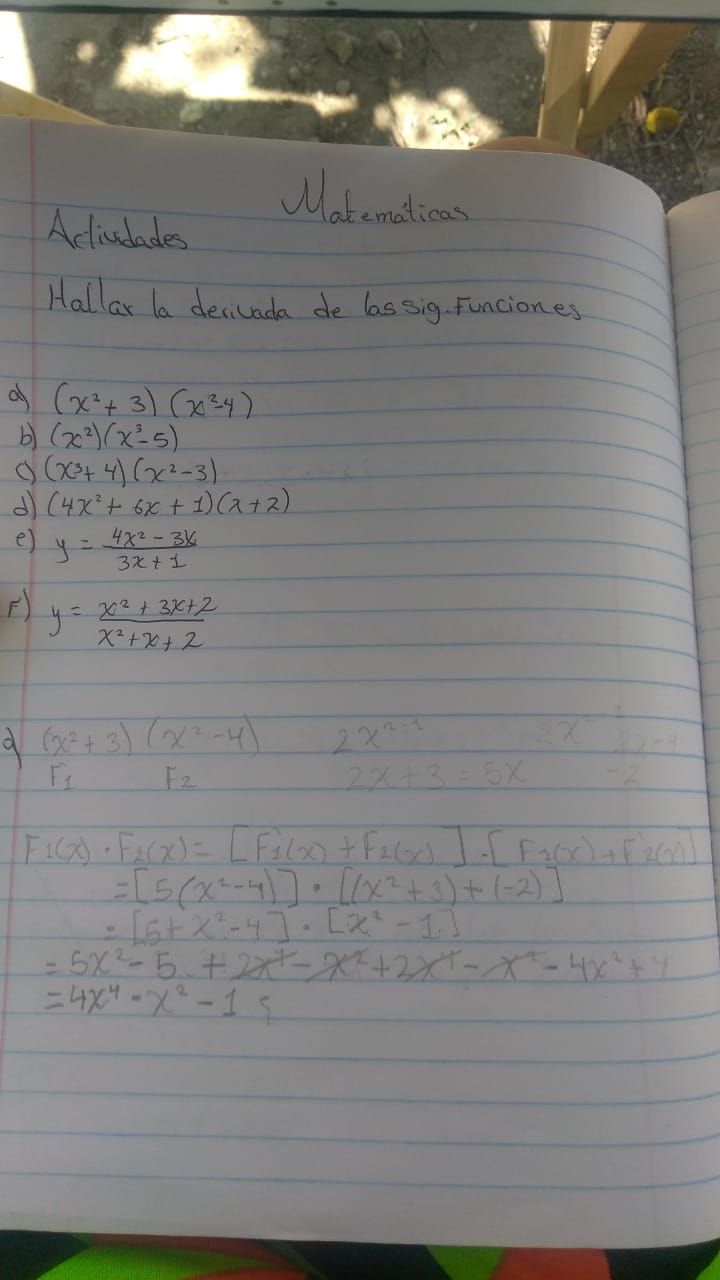 Matemáticas
Actividades
Hallar la derivada de las sig. Funciones
a) (x²+ 3) (x²-4)
b) (x²)(x³-5)
c) (x³+ 4)(x²-3)
d) (4x²+ 6x + 1)(x+2)
e) y = 4x² - 3x / 3x + 1
F) y = x² + 3x+2 / x²+x+2
a) (x²+3) (x²-4) 2x²⁻¹ 2x
F1 F2 2x+3 = 5x -2
F1(x) · F2(x) = [F1'(x) + F2(x)] · [F1(x) + F2'(x)]
= [5(x²-4)] · [(x²+3)+(-2)]
= [5+x²-4] · [x²-1]
= 5x²-5 + 2x⁴ - x² + 2x⁴ - x² - 4x² + 4
= 4x⁴ - x² - 1